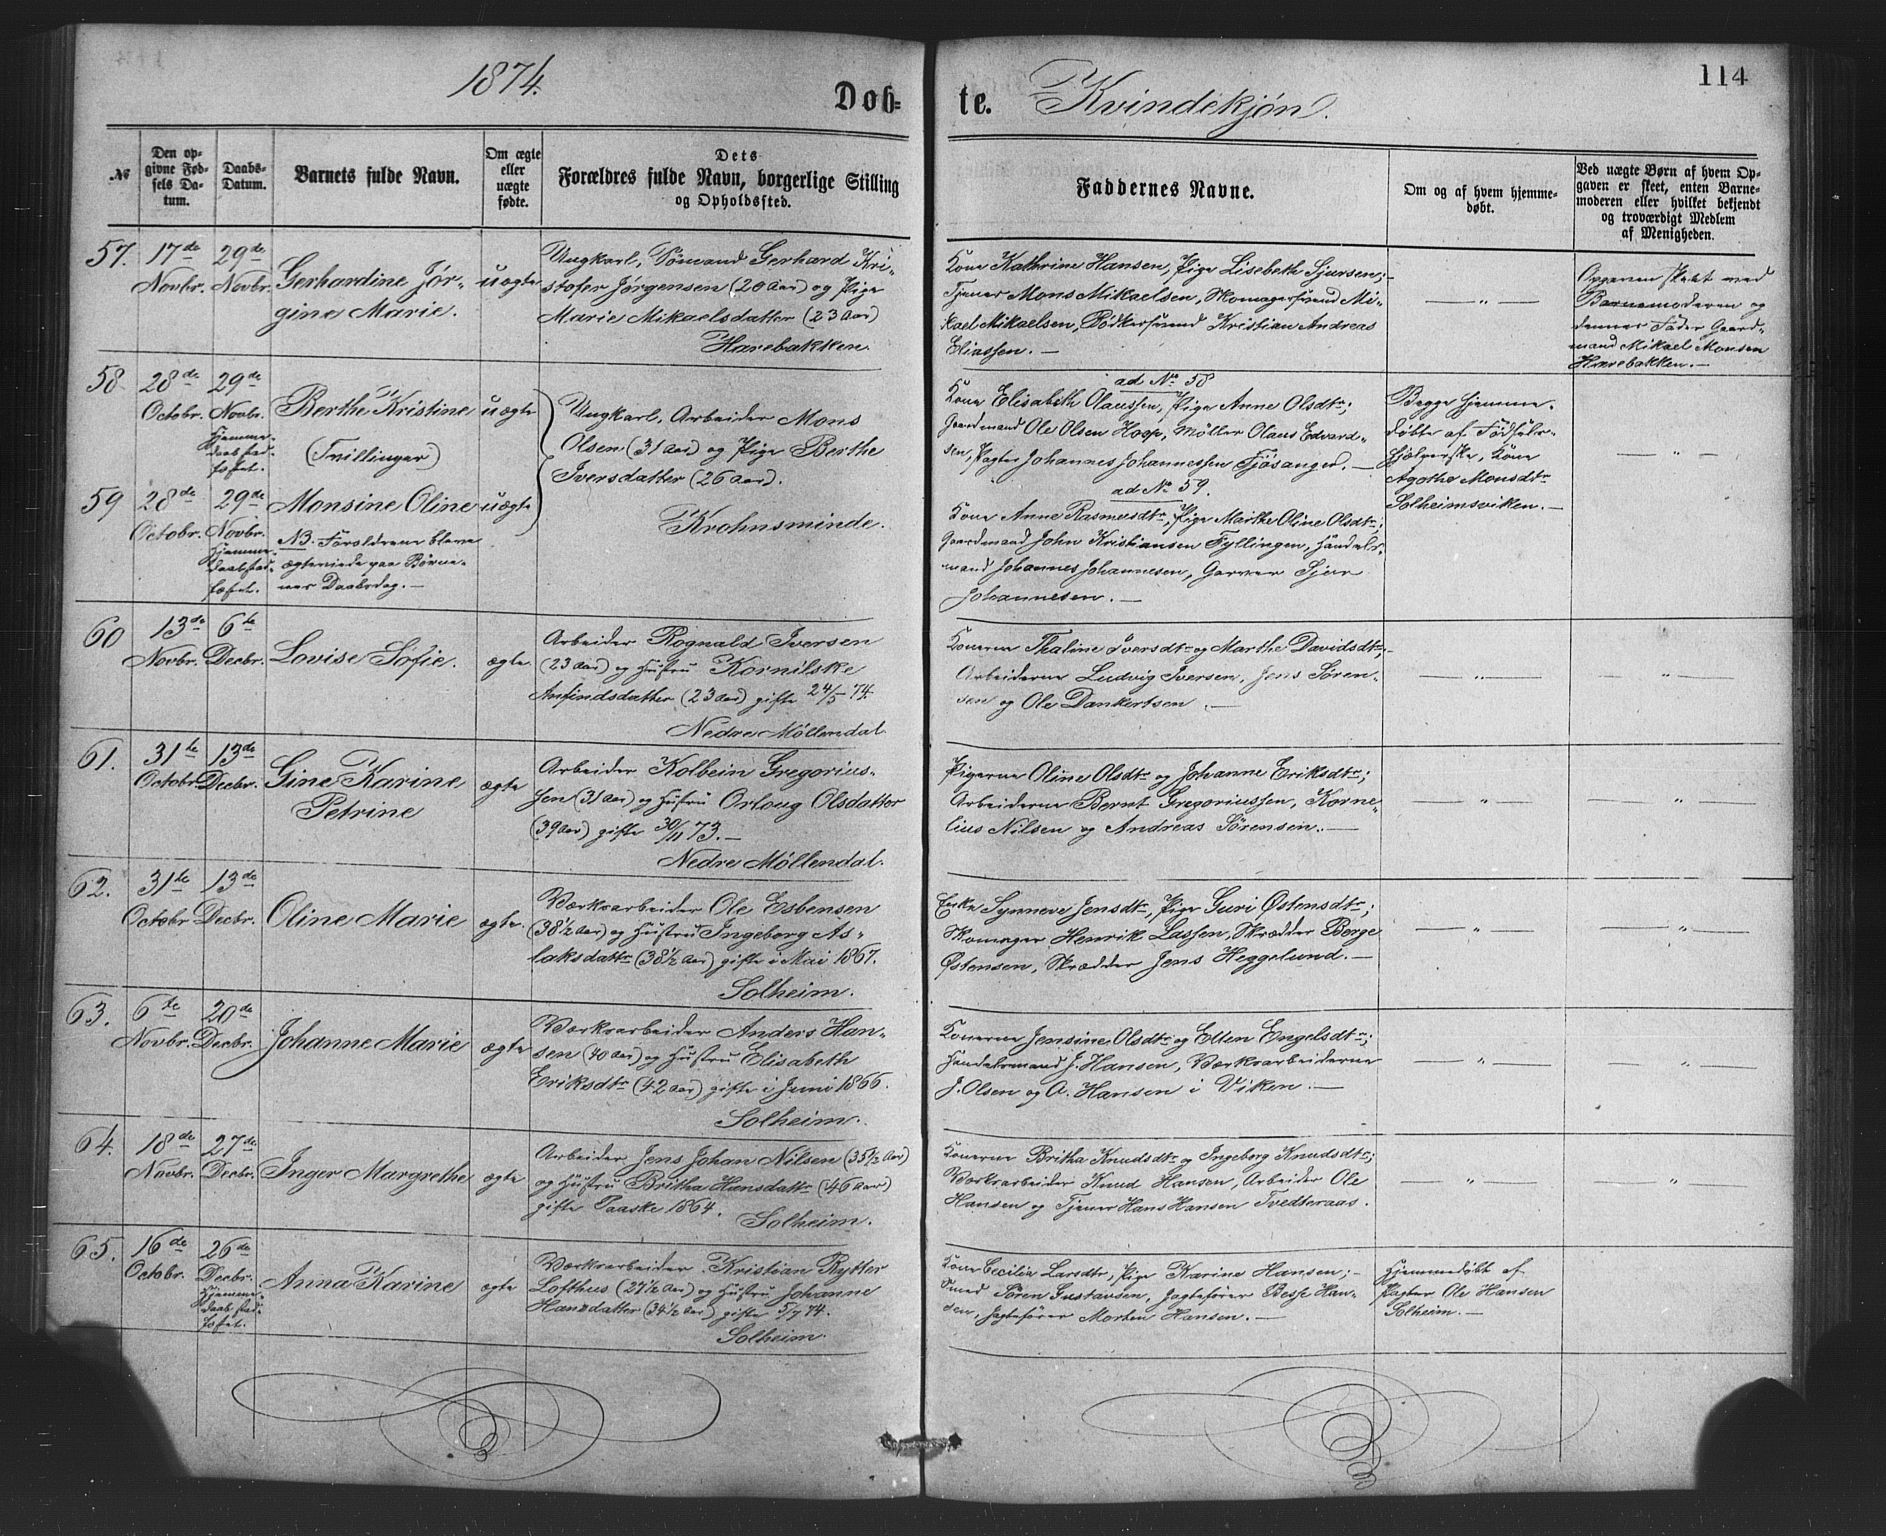 1874.
Døb-
te. Kvindekjøn.
114
№
Den op-
givne Fød-
sels Da-
tum.
Daabs-
Datum.
Barnets fulde Navn.
Om ægte
eller
uægte
fødte.
Dets
Forældres fulde Navn, borgerlige Stilling
og Opholdssted.
Faddernes Navne.
Om og af hvem hjemme-
døbt.
Ved uægte Børn af hvem Op-
gaven er skeet, enten Barne-
moderen eller hvilket bekjendt
og troværdigt Medlem
af Menigheden.
57. 17de Novbr. 29de Novbr.
Gerhardine Jør-
gine Marie.
uægte
Ungkarl, Sømand Gerhard Kri-
stofer Jørgensen (20 Aar) og Pige
Marie Mikaelsdatter (23 Aar)
Harebakken.
Kone Kathrine Hansen, Pige Lisebeth Sjursen;
Tjener Mons Mikaelsen, Skomagersvend Mi-
kael Mikaelsen, Bødkersvend Kristian Andreas
Eliassen. —
— " —
Opgaven skeet ved
Barnemoderen og
dennes Fader Gaard-
mand Mikael Monsen
Harebakken. —
58. 28de Octobr. 29de Novbr.
Hjemme-
daab stad-
fæstet.
Berthe Kristine
(Tvillinger)
uægte
Ungkarl, Arbeider Mons
Olsen (31 Aar) og Pige Berthe
Iversdatter (26 Aar).
Krohnsminde.
ad No 58
Kone Elisabeth Olaussen, Pige Anne Olsdtr;
Gaardmand Ole Olsen Hop, Møller Olaus Edvard-
sen, Pagter Johannes Johannessen Fjøsanger. —
Begge hjemme-
døbte af Fødsels-
hjælperske, Kone
Agathe Monsdtr
Solheimsviken. —
— " —
59 28de Octobr. 29de Novbr.
Hjemme-
daab stad-
fæstet.
Monsine Oline
uægte
NB. Forældrene bleve
ægteviede paa Børne-
nes Daabsdag. —
ad No 59.
Kone Anne Rasmusdtr, Pige Marthe Oline Olsdtr;
Gaardmand John Kristiansen Fyllingen, Handels-
mand Johannes Johannesen, Garver Sjur
Johannesen. —
60 13de Novbr. 6te Decbr.
Lovise Sofie.
ægte
Arbeider Rognald Iversen
(23 Aar) og Hustru Kornilske
Anfindsdatter (23 Aar) gifte 24/5 74.
Nedre Møllendal
Konerne Thaline Iversdtr og Marthe Davidsdtr;
Arbeiderne Ludvig Iversen, Jens Søren-
sen og Ole Dankertsen. —
— " —
— " —
61. 31te Octobr. 13de Decbr.
Gine Karine
Petrine
ægte
Arbeider Kolbein Gregorius-
sen (31 Aar) og Hustru Orloug Olsdatter
(39 Aar) gifte 30/11 73. —
Nedre Møllendal.
Pigerne Oline Olsdtr og Johanne Eriksdtr;
Arbeiderne Bernt Gregoriussen, Korne-
lius Nilsen og Andreas Sørensen. —
— " —
— " —
62. 31te Octobr. 13de Decbr.
Oline Marie
ægte
Værksarbeider Ole Esbensen
(38½ Aar) og Hustru Ingeborg As-
laksdattr (38½ Aar) gifte i Mai 1867.
Solheim.
Enke Synneve Jensdtr, Pige Guri Østensdtr;
Skomager Henrik Lassen, Skrædder Berge
Østensen, Skrædder Jens Heggelund. —
— " —
— " —
63. 6te Novbr. 20de Decbr.
Johanne Marie
ægte
Værksarbeider Anders Han-
sen (40 Aar) og Hustru Elisabeth
Eriksdtr (42 Aar) gifte i Juni 1866.
Solheim.
Konerne Jensine Olsdtr og Ellen Engelsdtr;
Handelsmand J. Hansen, Værksarbeiderne
J. Olsen og A. Hansen i Viken. —
— " —
— " —
64. 18de Novbr. 27de Decbr.
Inger Margrethe
ægte
Arbeider Jens Johan Nilsen (35½ Aar)
og Hustru Britha Hansdattr (46 Aar)
gifte Paaske 1864.
Solheim.
Konerne Britha Knudsdtr og Ingeborg Knudsdtr;
Værksarbeider Knud Hansen, Arbeider Ole
Hansen og Tjener Hans Hansen Tvedteraas.
— " —
— " —
65. 16de Octobr. 26de Decbr.
Hjemme-
daab stad-
fæstet.
Anna Karine
ægte
Værksarbeider Kristian Rytter
Lofthus (27½ Aar) og Hustru Johanne
Hansdatter (34½ Aar) gifte 5/7 74.
Solheim.
Kone Cecilia Larsdtr, Pige Karine Hansen; —
Smed Søren Gustavsen, Jagtefører Besse Han-
sen, Jagtefører Morten Hansen. —
Hjemmedøbt af
Pagter Ole Hansen
Solheim. —